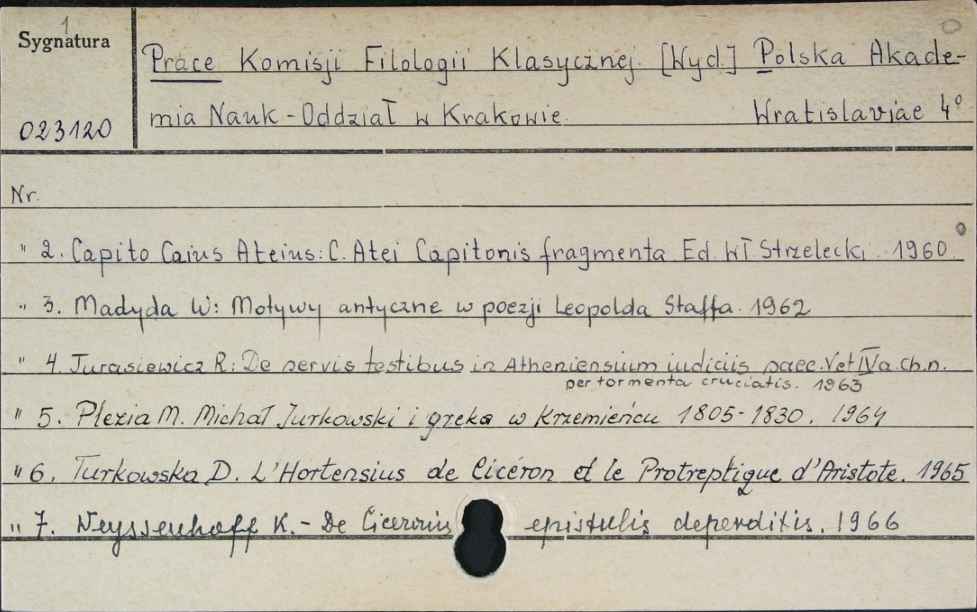 1
Sygnatura
023120
Prace Komisji Filologii Klasycznej. [Wyd.] Polska Akade-
mia Nauk - Oddział w Krakowie. Wratislaviae 4°
Nr.
" 2. Capito Caius Ateius: C. Atei Capitonis fragmenta Ed. Wł Strzelecki. 1960.
" 3. Madyda W: Motywy antyczne w poezji Leopolda Staffa. 1962
" 4. Jurasiewicz R.: De servis testibus in Atheniensium iudiciis saec. V et IV a. ch. n.
per tormenta cruciatis. 1963
" 5. Plezia M. Michał Jurkowski i greka w Krzemieńcu 1805-1830. 1964
" 6. Turkowska D. L'Hortensius de Cicéron et le Protreptique d'Aristote. 1965
" 7. Weyssenhoff K. - De Ciceronis epistulis deperditis. 1966